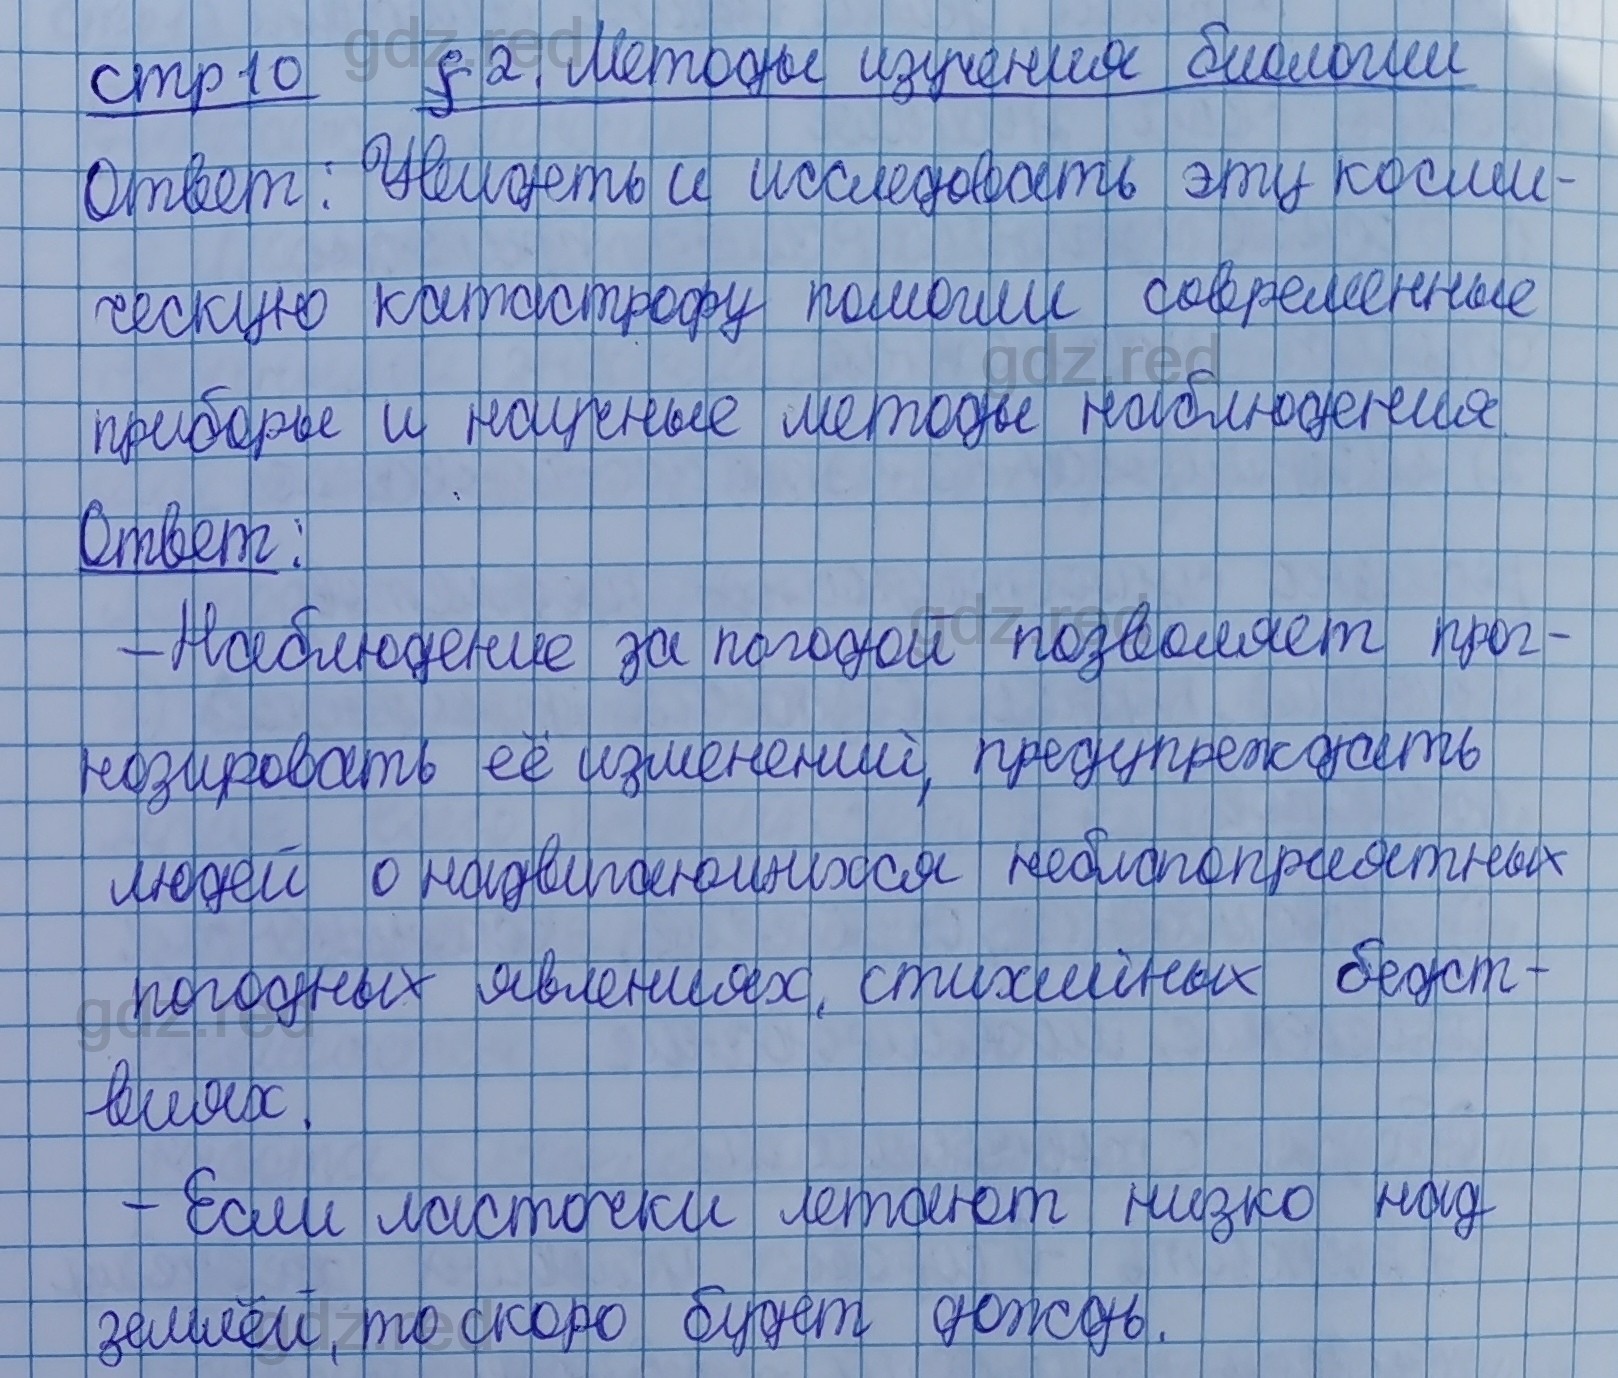 стр 10 § 2. Методы изучения биологии
Ответ: Увидеть и исследовать эту косми-
ческую катастрофу помогли современные
приборы и научные методы наблюдения
Ответ:
- Наблюдение за погодой позволяет прог-
нозировать её изменений, предупреждать
людей о надвигающихся неблагоприятных
погодных явлениях, стихийных бедст-
виях.
- Если ласточки летают низко над
землёй, то скоро будет дождь.
gdz.red
gdz.red
gdz.red
gdz.red
gdz.red